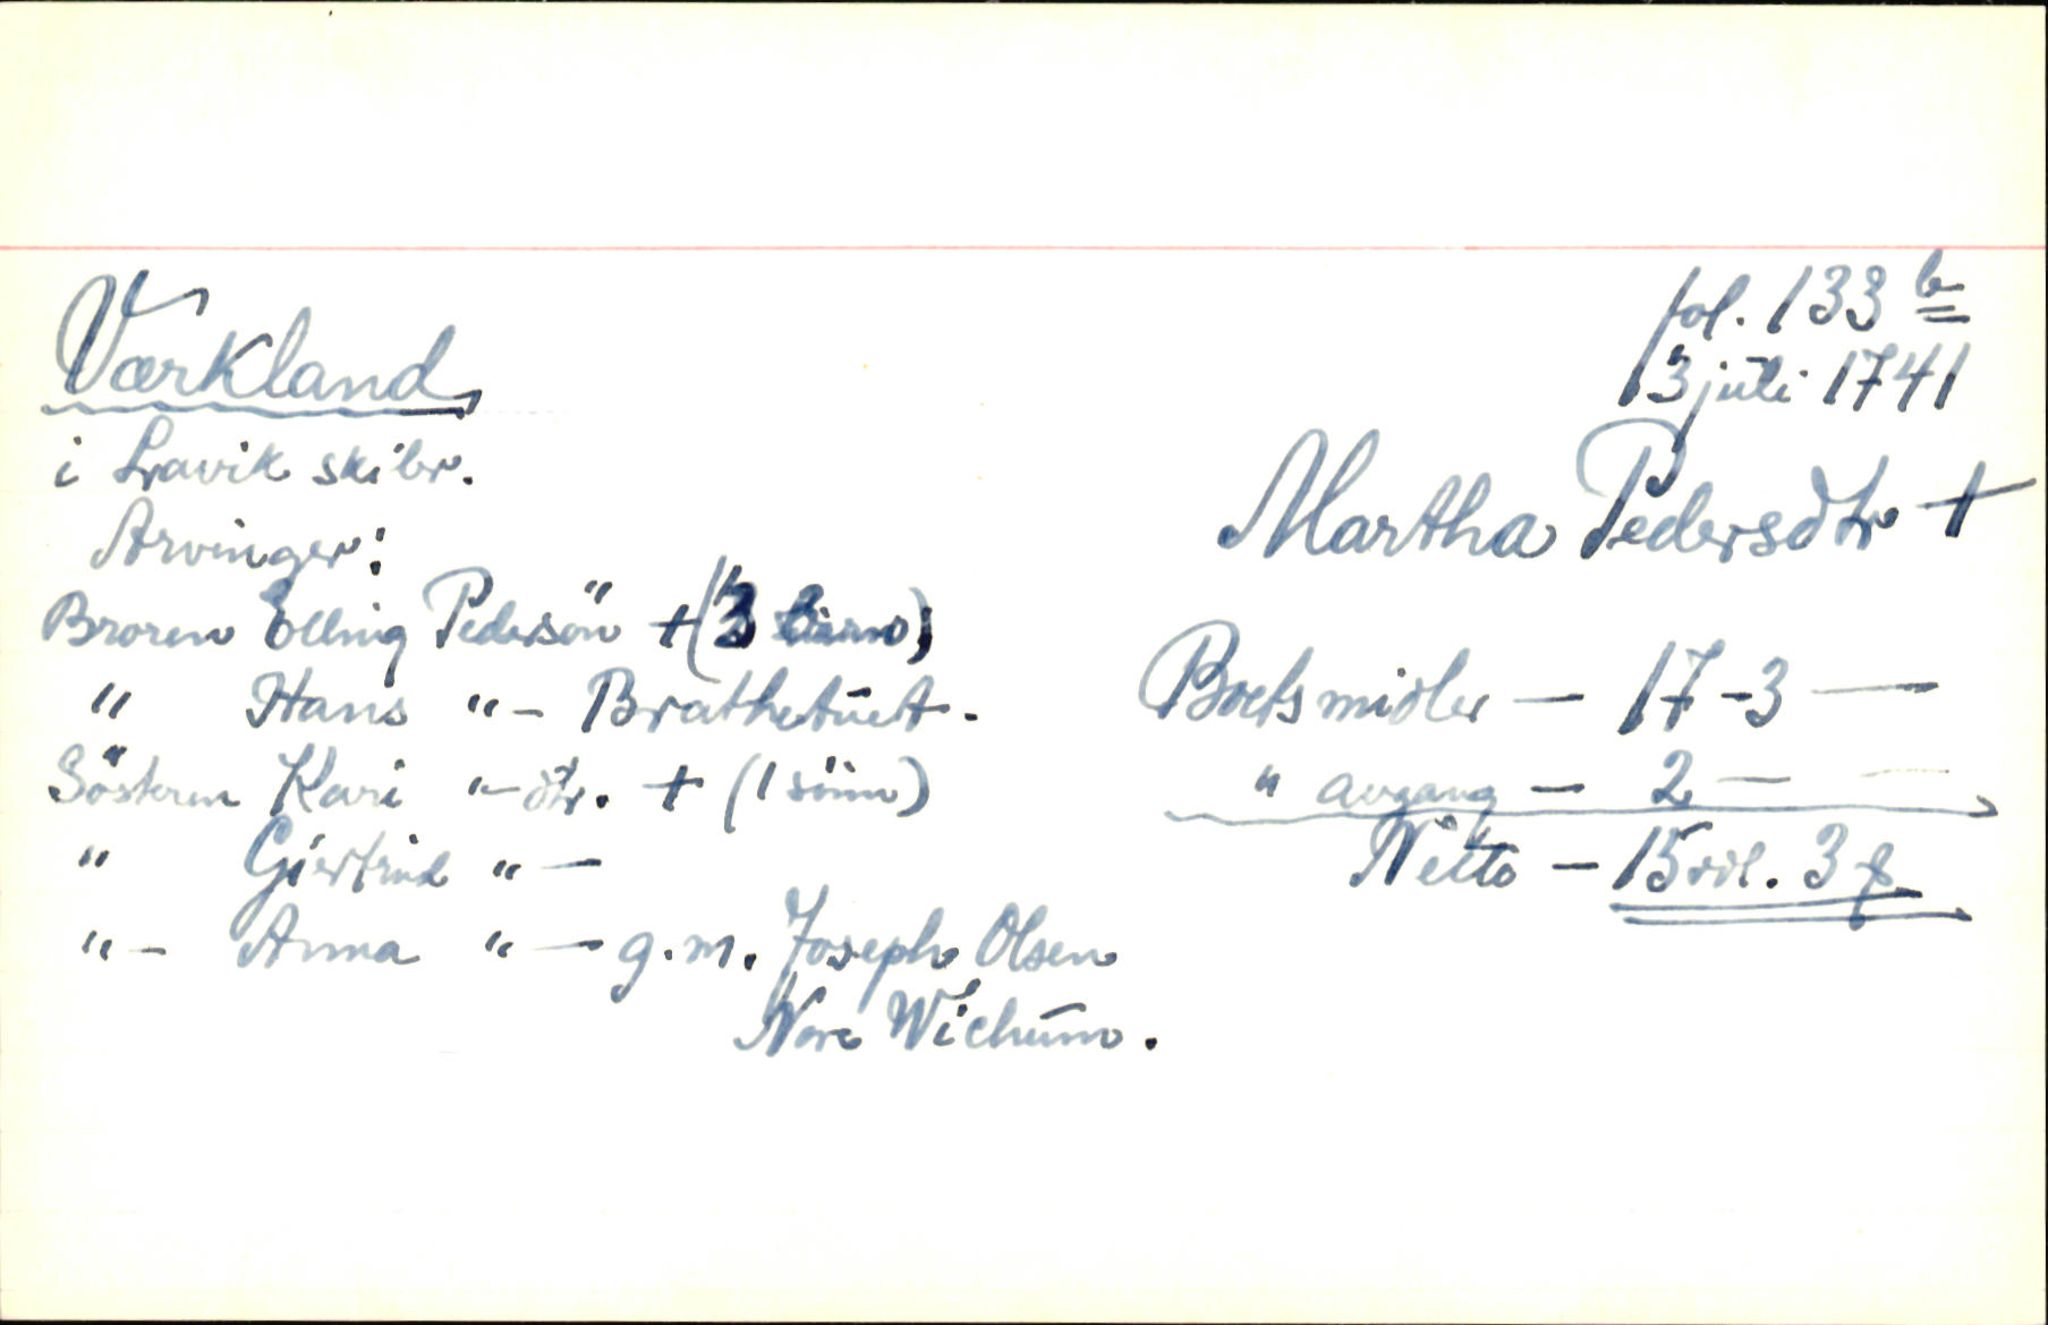 Værkland
i Lavik skibr.
Arvinger:
Broren Elling Pedersön + (3 barn)
" Hans "- Brathetuet.
Sösteren Kari "- dtr. + (1 sönn)
" Giertrud " -
"- Anna " - g.m. Joseph Olsen
Nore Wichum.
fol. 133 b
13 juli 1741
Martha Pedersdtr +
Boets midler - 17-3 -
" avgang - 2 - -
Netto - 15 rdl. 3